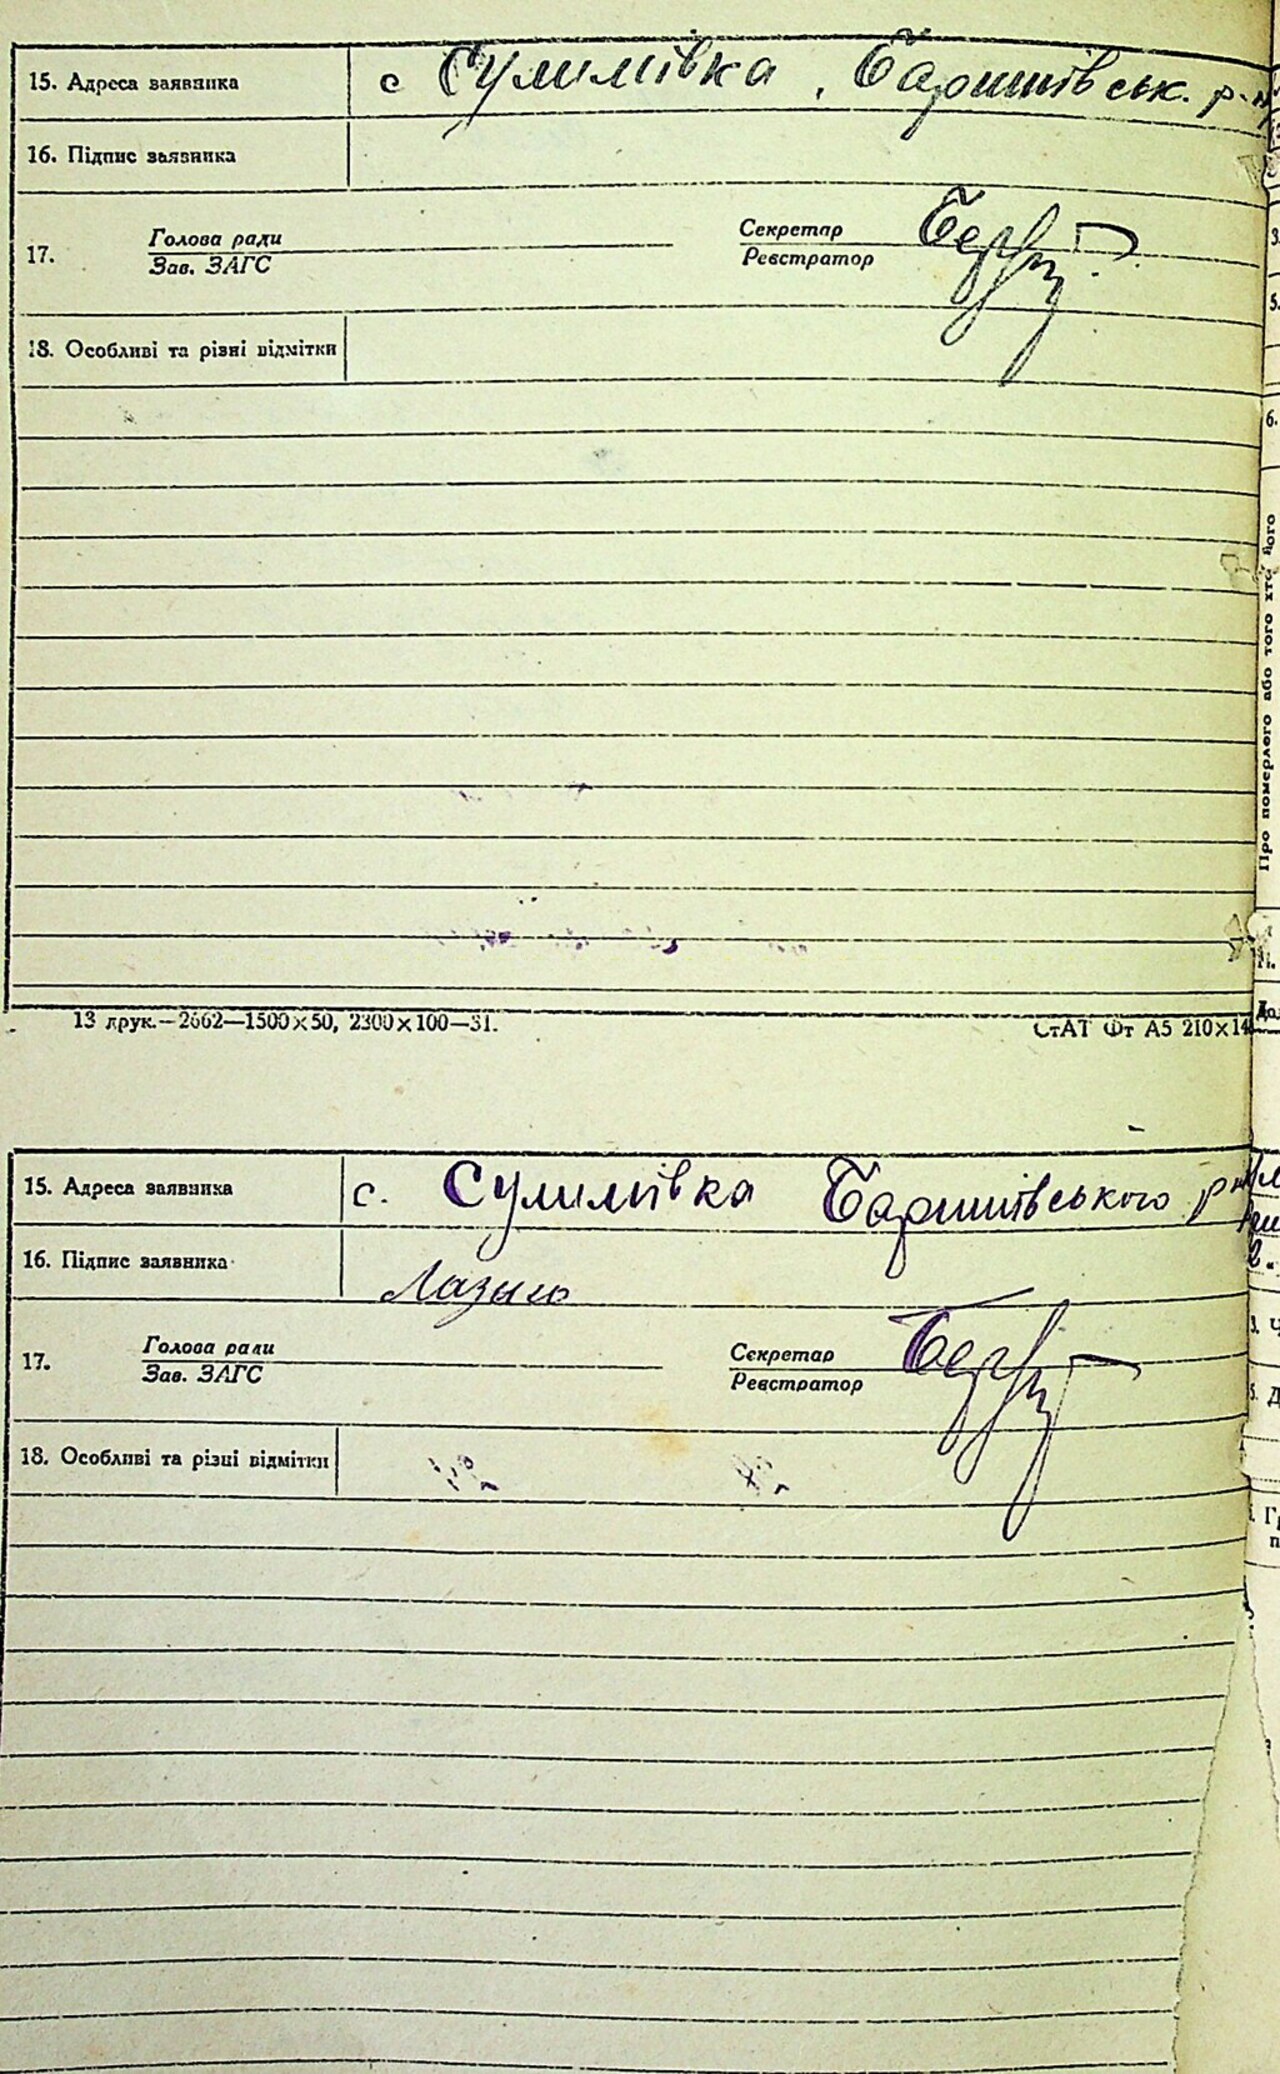 15. Адреса заявника с Сулимівка, Баришівськ. р-н
16. Підпис заязника
17. Голова ради Секретар
Зав. ЗАГС Реєстратор
18. Особливі та різні відмітки
13 друк.—2662—1500×50, 2300×100—31.
СтАТ Фт А5 210×14
15. Адреса заявника с. Сулимівка Баришівського р-н
16. Підпис заявника
17. Голова ради Секретар
Зав. ЗАГС Реєстратор
18. Особливі та різні відмітки
Про померлого або того хто його